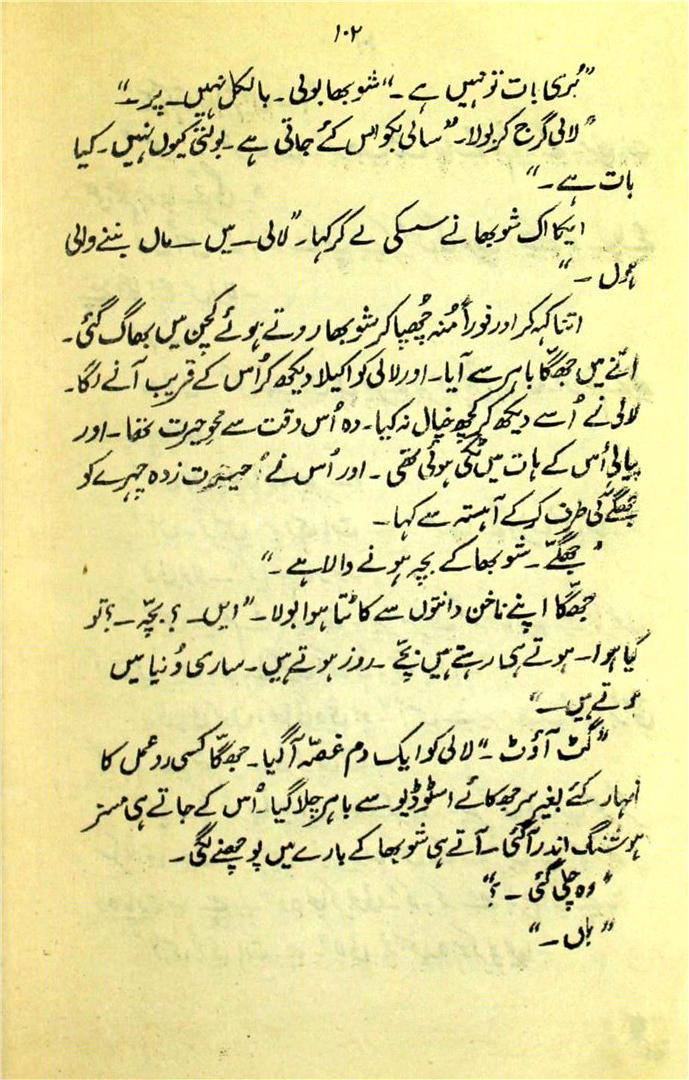 ۱۰۲
"بُری بات تو نہیں ہے۔" شوبھا بولی۔ بالکل نہیں۔ پر۔"
"لالی گرج کر بولا۔ "سالی بکواس کئے جاتی ہے۔ بولتی کیوں نہیں۔ کیا
بات ہے۔"
ایکا اک شوبھا نے سسکی لے کر کہا۔ "لالی۔ میں۔ ماں بننے والی
ہوں۔"
اتنا کہہ کر اور فوراً مُنہ چُھپا کر شوبھا روتے ہوئے کچن میں بھاگ گئی۔
اتنے میں جھگّا باہر سے آیا۔ اور لالی کو اکیلا دیکھ کر اُس کے قریب آنے لگا۔
لالی نے اُسے دیکھ کر کچھ خیال نہ کیا۔ وہ اُس وقت سے محوِ حیرت تھا۔ اور
پیالی اُس کے ہات میں ٹکی ہوئی تھی۔ اور اُس نے حیرت زدہ چہرے کو
جھگّے کی طرف کر کے آہستہ سے کہا۔
"جھگّے۔ شوبھا کے بچہ ہونے والا ہے۔"
جھگّا اپنے ناخن دانتوں سے کاٹتا ہوا بولا۔ "ایں۔؟ بچّہ۔؟ تو
کیا ہوا۔ ہوتے ہی رہتے ہیں بچّے۔ روز ہوتے ہیں۔ ساری دُنیا میں
ہوتے ہیں۔"
"گٹ آؤٹ۔" لالی کو ایک دم غصّہ آگیا۔ جھگّا کسی ردِ عمل کا
اظہار کئے بغیر سر جھکائے اسٹوڈیو سے باہر چلا گیا۔ اُس کے جاتے ہی مسز
ہوشنگ اندر آ گئی۔ آتے ہی شوبھا کے بارے میں پوچھنے لگی۔
"وہ چلی گئی۔؟"
"ہاں۔"